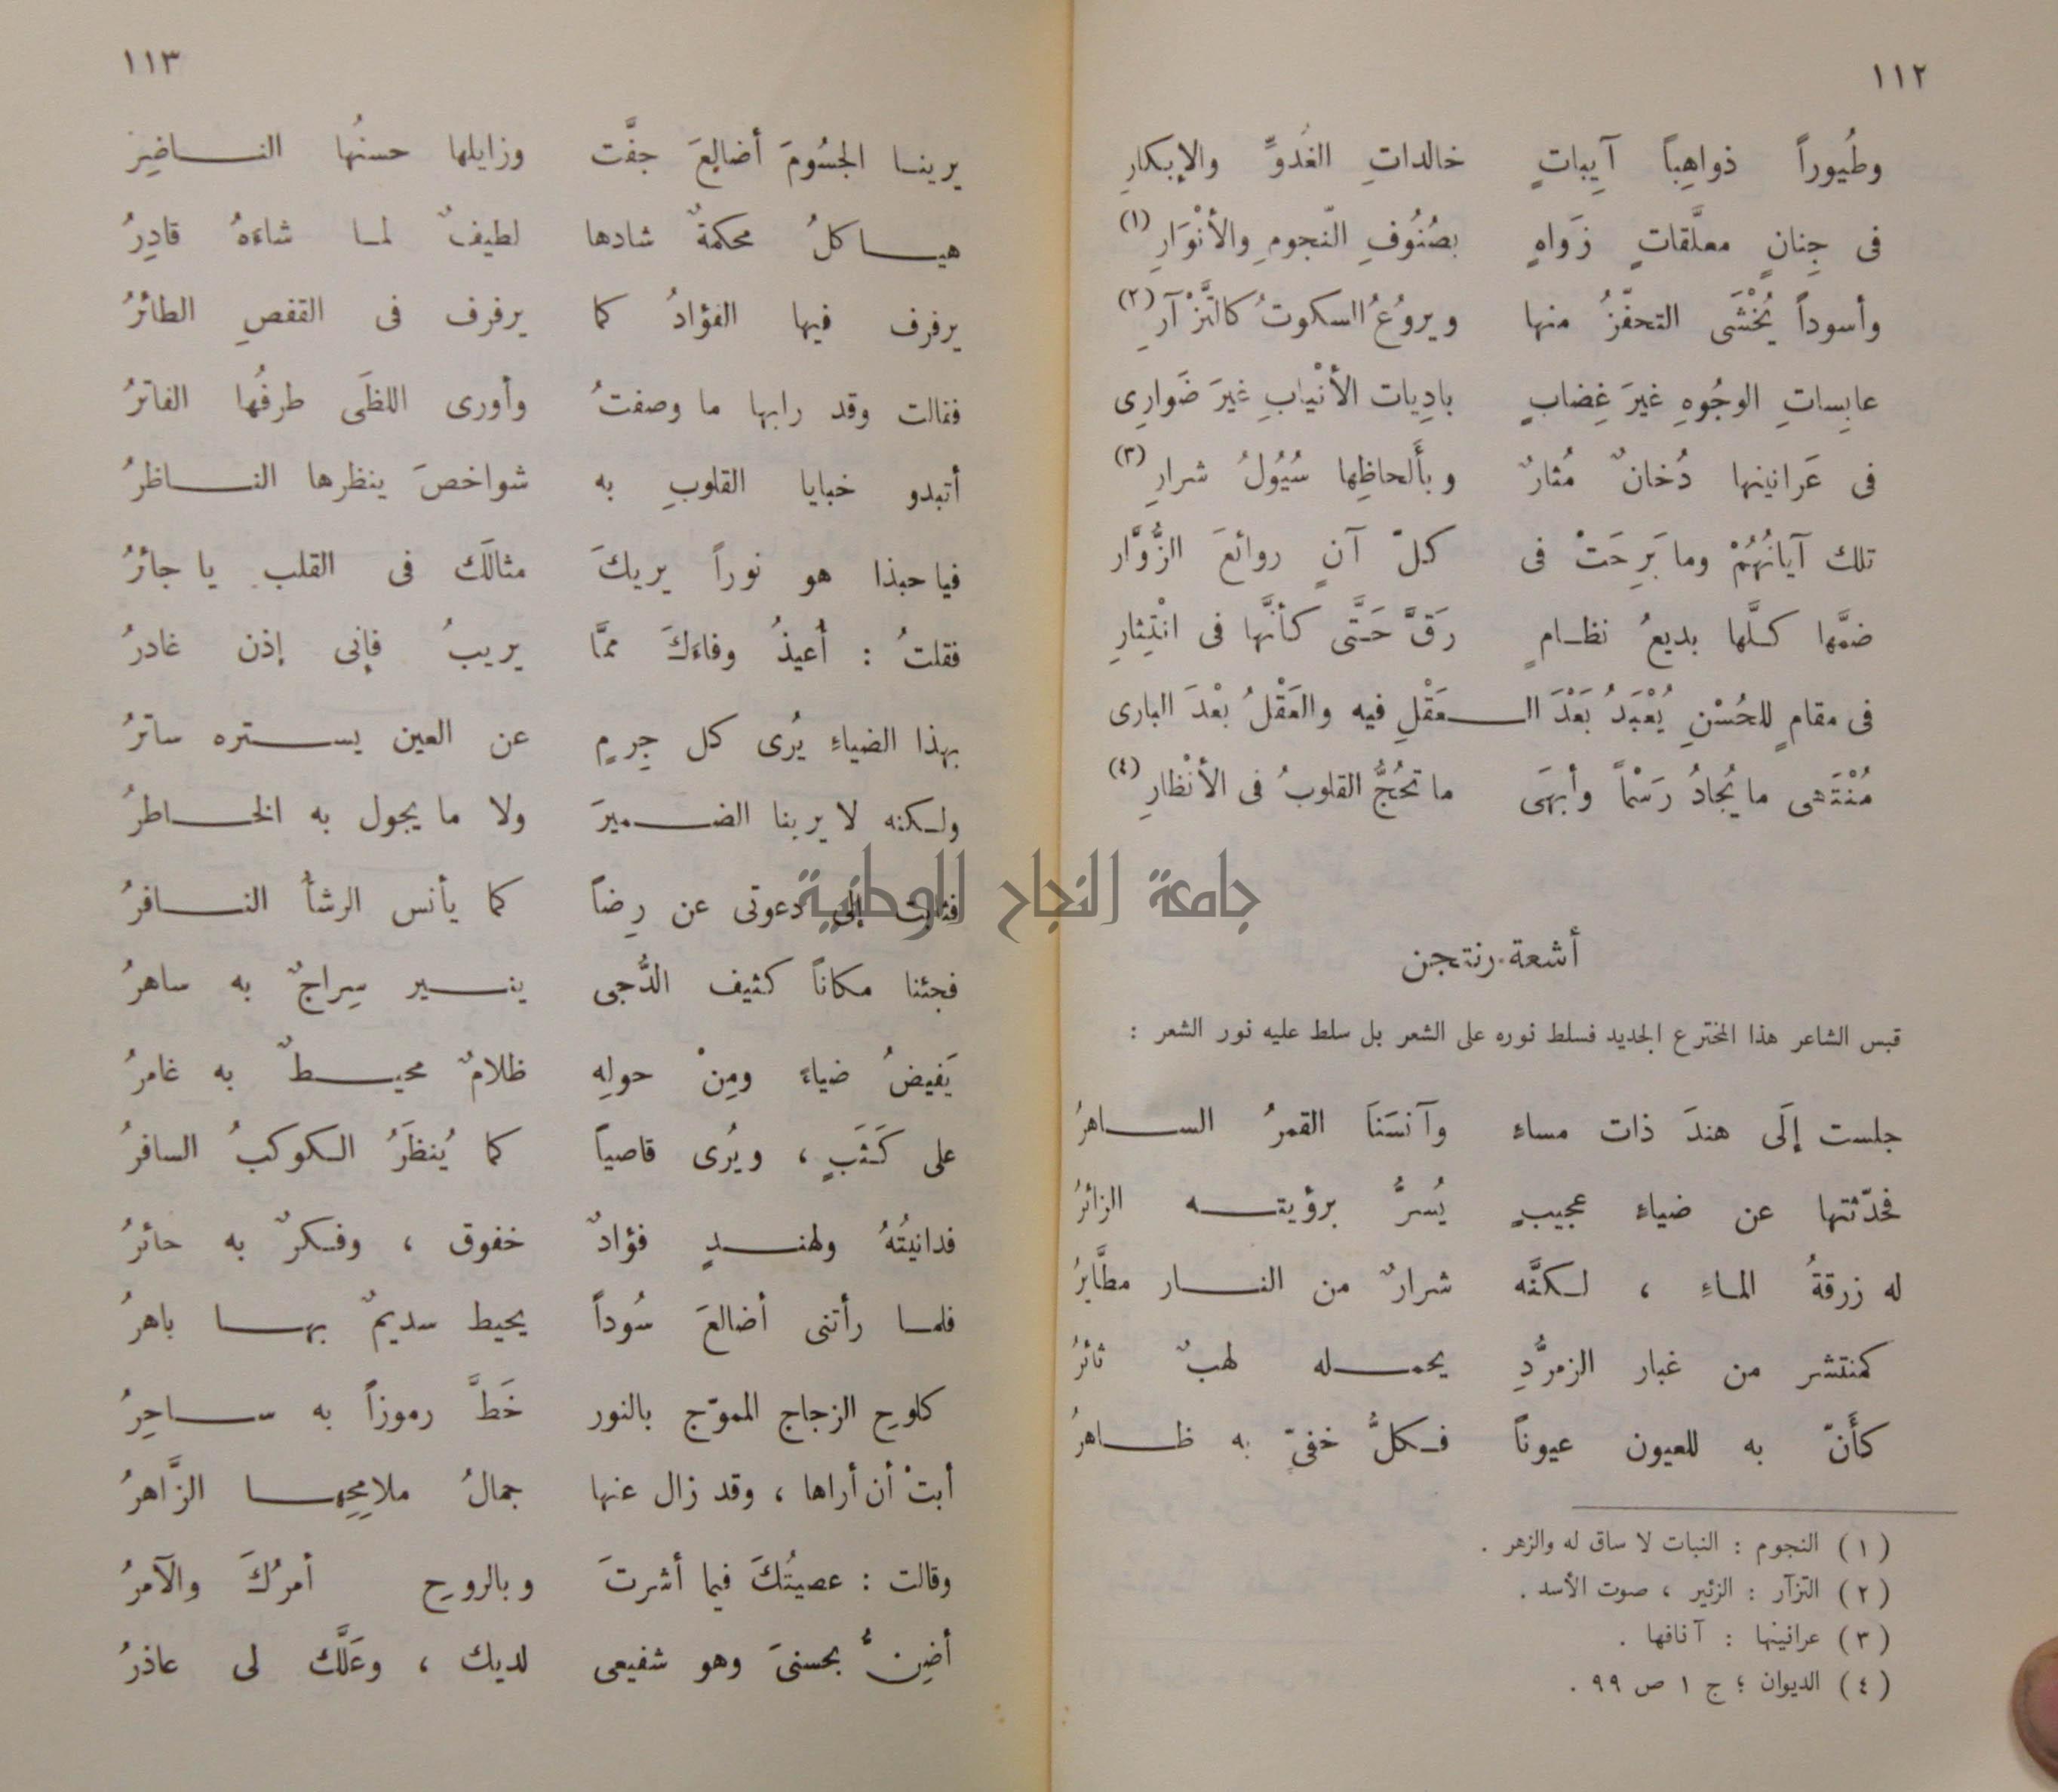 ١١٢
وطُيوراً ذواهِباً آيِباتٍ خالداتِ الغُدوِّ والإبكارِ
فى جِنانٍ معلَّقاتٍ زَواهٍ بصُنُوفِ النّجومِ والأنْوَارِ (١)
وأسوداً يُخْشَى التحفّزُ منها ويروُعُ السكوتُ كالتَّزْآرِ (٢)
عابِساتِ الوجُوهِ غيرَ غِضابٍ بادِيات الأنْيابِ غيرَ ضَوارِى
فى عَرانينها دُخانٌ مُثارٌ وبأَلحاظِها سُيُولُ شرارِ (٣)
تلك آياتُهُمْ وما بَرِحَتْ فى كلّ آنٍ روائعَ الزُّوَّار
ضمَّها كلَّها بديعُ نظامٍ رَقَّ حَتَّى كأنَّها فى انْتِثارِ
فى مقامٍ للحُسْنِ يُعْبَدُ بَعْدَ العَقْلِ فيه والعَقْلُ بعْدَ البارى
مُنْتَهى ما يُجادُ رَسْماً وأبهَى ما تحُجُّ القلوبُ فى الأنْظارِ (٤)
أشعة رنتجن
قبس الشاعر هذا المخترع الجديد فسلط نوره على الشعر بل سلط عليه نور الشعر :
جلست إلَى هندَ ذات مساءِ وآنسَنَا القمرُ الساهرُ
فحدّثتها عن ضياءِ عجيبٍ يُسرُّ برؤيته الزائرُ
له زرقةُ الماءِ ، لكنَّه شرارٌ من النار مطَّايرُ
كمنتشر من غبار الزمرُّدِ يحمله لهبٌ ثائرُ
كأَنّ به للعيون عيوناً فكلُّ خفىّ به ظاهرُ
(١) النجوم : النبات لا ساق له والزهر .
(٢) التزآر : الزئير ، صوت الأسد .
(٣) عرانينها : آنافها .
(٤) الديوان ؛ ج ١ ص ٩٩ .
١١٣
يرينا الجسُومَ أضالِعَ جفَّت وزايلها حسنُها الناضِرُ
هياكلُ محكمةٌ شادها لطيفٌ لما شاءَهُ قادِرُ
يرفرف فيها الفؤادُ كما يرفرف فى القفصِ الطائرُ
فقالت وقد رابها ما وصفتُ وأورى اللظَى طرفُها الفاترُ
أتبدو خبايا القلوبِ به شواخصَ ينظرها الناظرُ
فيا حبذا هو نوراً يريكَ مثالَك فى القلب يا جائرُ
فقلتُ : أُعيذُ وفاءَكَ ممَّا يريبُ فإنى إذن غادرُ
بهذا الضياءِ يُرى كل جِرمٍ عن العين يستره ساترُ
ولكنه لا يرينا الضميرَ ولا ما يجول به الخاطرُ
فثابت إلى دعوتى عن رِضاً كما يأنس الرشأُ النافرُ
فجئنا مكاناً كثيف الدُّجى ينير سِراجٌ به ساهرُ
يَفيضُ ضياءً ومِنْ حولِهِ ظلامٌ محيطٌ به غامرُ
على كَثَبٍ ، ويُرى قاصياً كما يُنظَرُ الكوكبُ السافرُ
فدانيتُهُ ولهندٍ فؤادٌ خفوق ، وفكرٌ به حائرُ
فلما رأتنى أضالعَ سُوداً يحيط سديمٌ بها باهرُ
كلوحِ الزجاج المموّج بالنور خَطَّ رموزاً به ساحِرُ
أبتْ أن أراها ، وقد زال عنها جمالُ ملامِحِها الزَّاهرُ
وقالت : عصيتُكَ فيما أشرتَ وبالروحِ أمرُكَ والآمرُ
أضِنُّ بحسنىَ وهو شفيعى لديك ، وعَلَّك لى عاذرُ
جامعة النجاح الوطنية